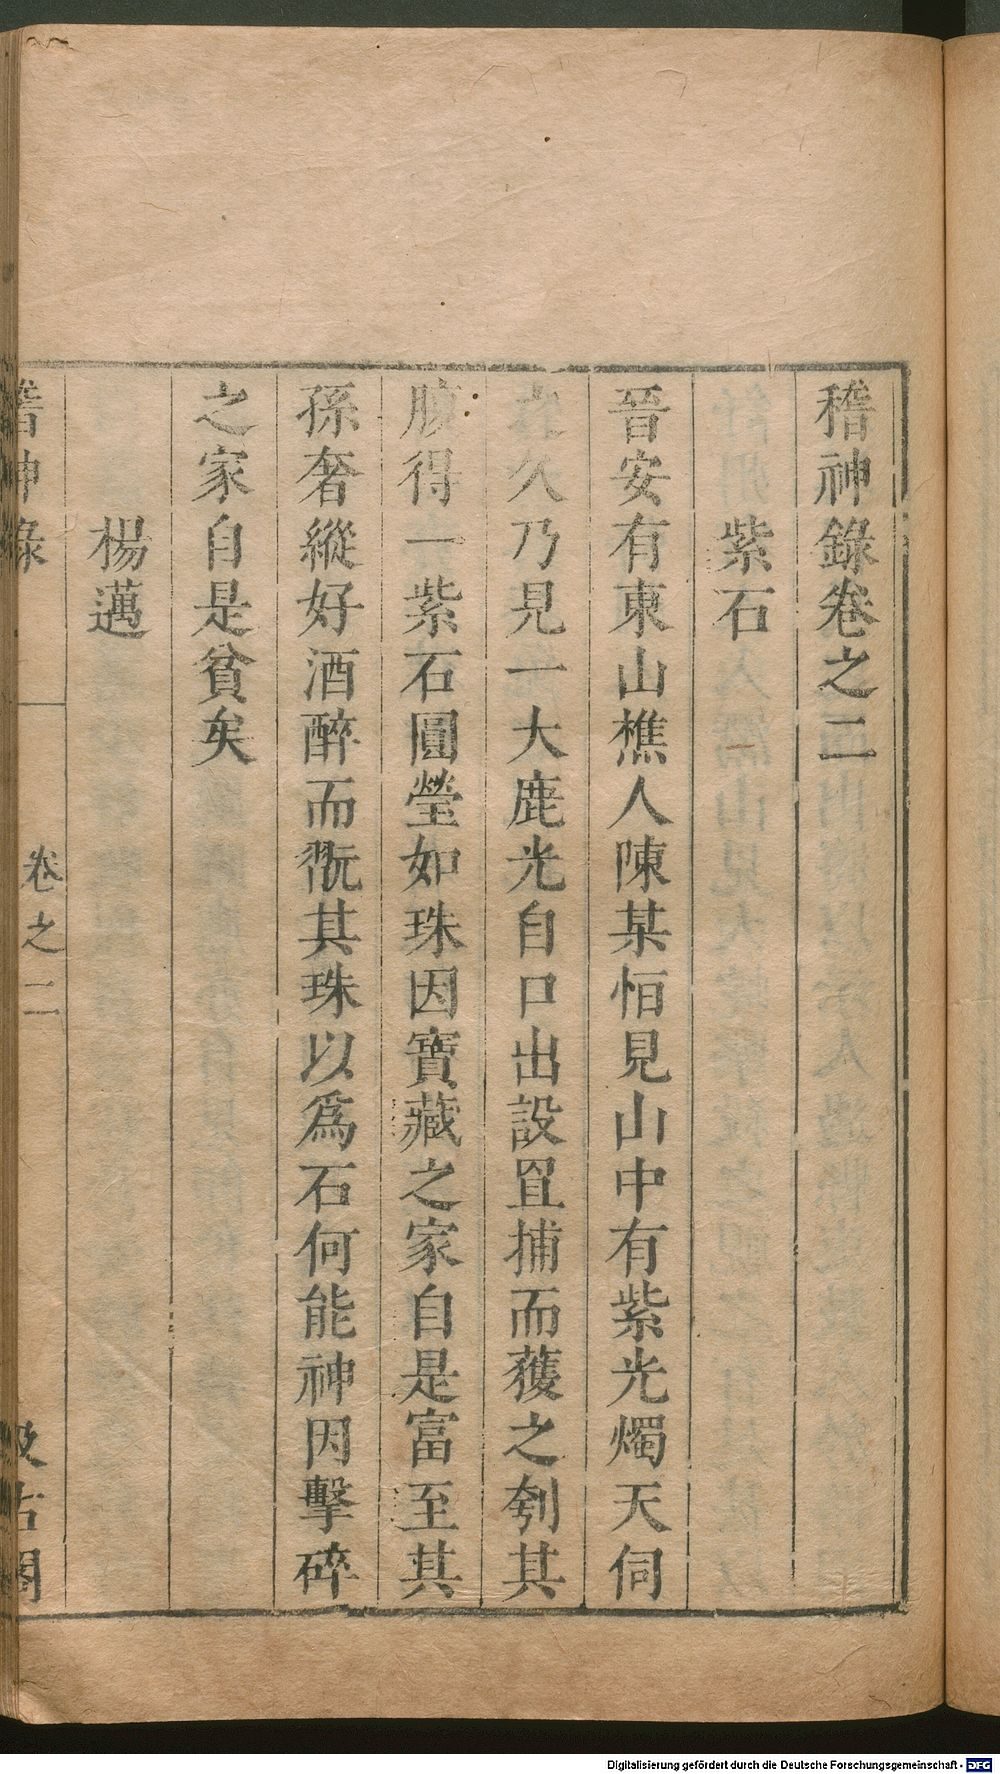 稽神錄卷之二
紫石
晉安有東山樵人陳某恒見山中有紫光燭天伺
久乃見一大鹿光自口出設罝捕而獲之刳其
腹得一紫石圓瑩如珠因寶藏之家自是富至其
孫奢縱好酒醉而翫其珠以爲石何能神因擊碎
之家自是貧矣
楊邁
稽神錄 卷之二 汲古閣
Digitalisierung gefördert durch die Deutsche Forschungsgemeinschaft - DFG